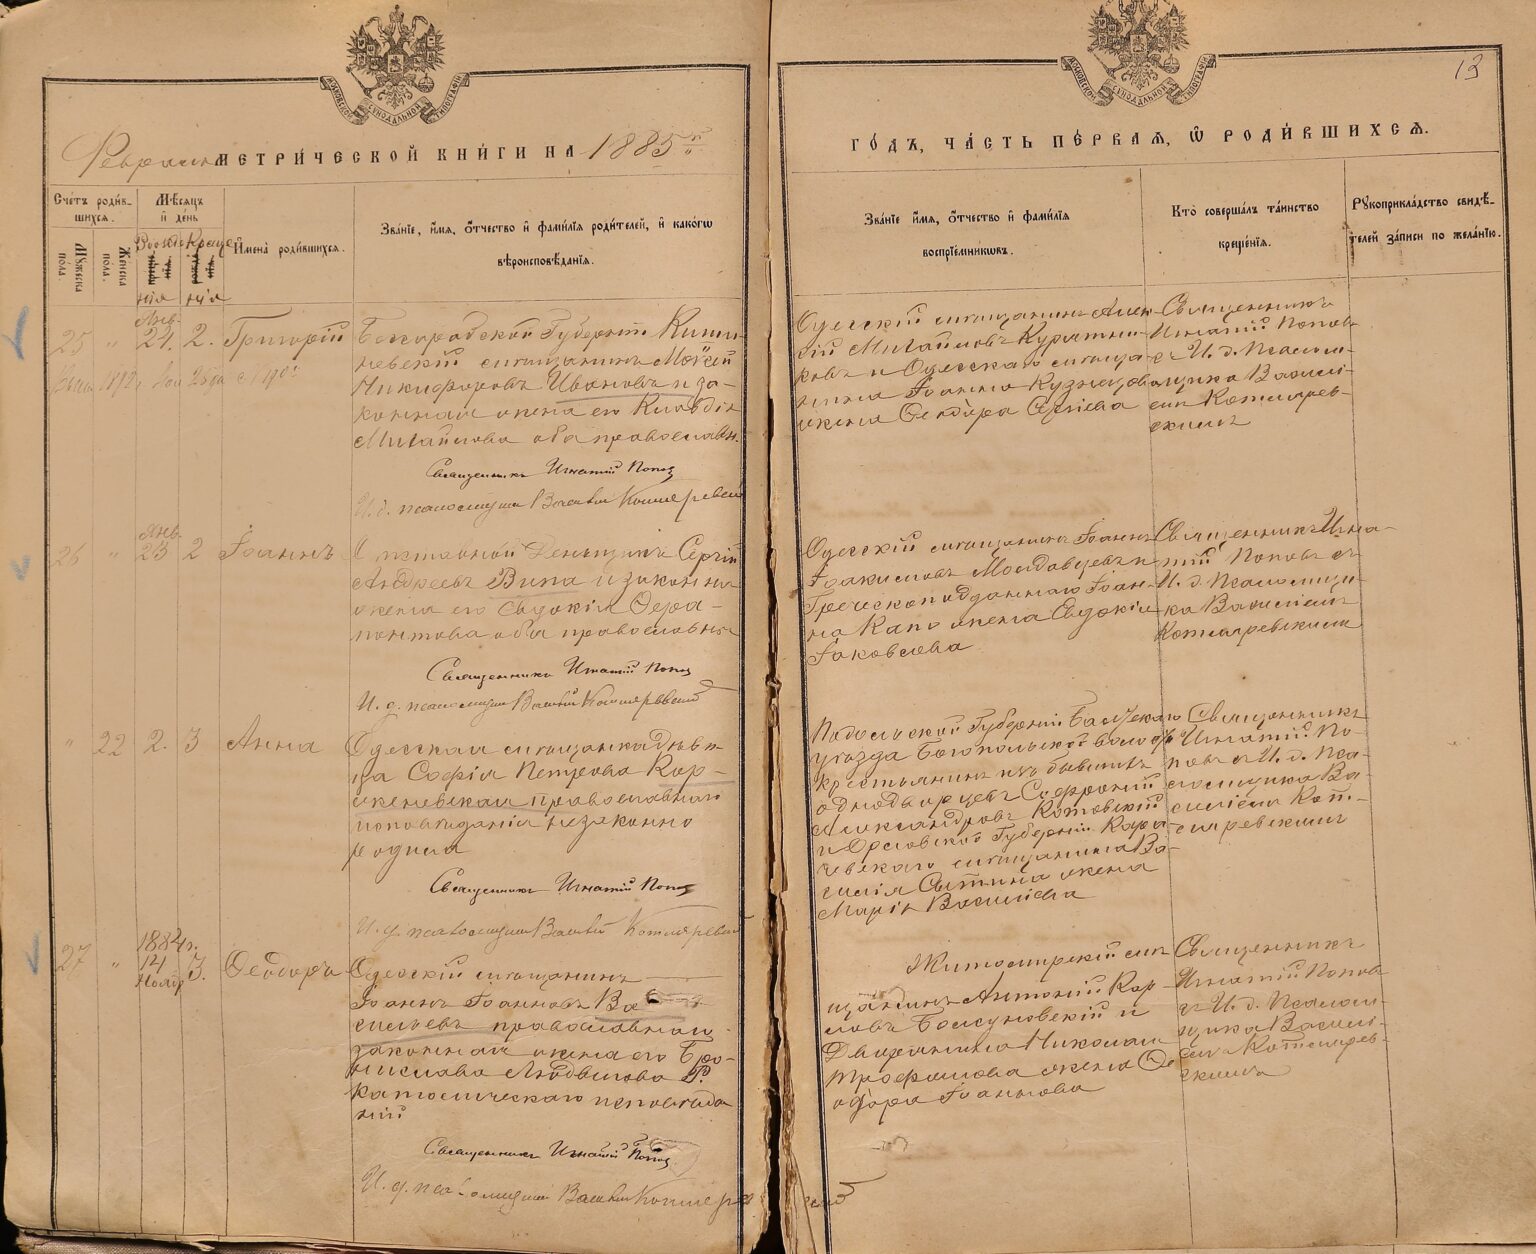 МОСКОВСКОЙ СѴНОДАЛЬНОЙ ТИПОГРАФІИ
МОСКОВСКОЙ СѴНОДАЛЬНОЙ ТИПОГРАФІИ
13
МЕТРИ́ЧЕСКОЙ КНИ́ГИ НА 1885й
ГО́ДЪ, ЧА́СТЬ ПЕ́РВАЯ, Ѡ҆ РОДИ́ВШИХСЯ.
Сче́тъ роди́в-
шихся.
Мѣ́сяцъ
и҆ де́нь
Мꙋ́жеска
пола.
Же́нска
пола.
И҆мена̀ роди́вшихся.
Зва́нїе, и҆́мя, ѻ҆́тчество и҆ фами́лїя роди́телей, и҆ како́гѡ
вѣроисповѣ́данїя.
Зва́нїе и҆́мя, ѻ҆́тчество и҆ фами́лїя
воспрїе́мникѡвъ.
Кто̀ соверша́лъ та́инство
креще́нїя.
Рꙋкоприкла́дство свидѣ́-
телей за́писи по жела́нїю.
25 " Янв. 21. 2. Григорій
Бессарабской Губерніи Киши-
невскій мѣщанинъ Моѵсей
Никифоровъ Ивановъ и за-
конная жена его Клавдія
Михайлова оба православн.
Священникъ Игнатій Попов
И. д. псаломщика Василій Котляревскій
Одесскій мѣщанинъ Алек-
сій Михайловъ Курятни-
ковъ и Одесскаго мѣща-
нина Іоанна Кузнецова
жена Ѳеодора Сергіева
Священникъ
Игнатій Поповъ
с И. д. Псалом-
щика Василі-
емъ Котлярев-
скимъ
26 " Янв. 23 2 Іоаннъ
Отставной Деньщикъ Сергій
Андреевъ Випа и законная
жена его Евдокія Ѳера-
понтова оба православные
Священникъ Игнатій Попов
И. д. псаломщика Василій Котляревскій
Одесскій мѣщанинъ Іоаннъ
Іоакимовъ Молдавцевъ и
Греческоподданнаго Іоан-
на Капо жена Евдокія
Іаковлева
Священникъ Игна-
тій Поповъ съ
И. д. Псаломщи-
ка Василіемъ
Котляревскимъ
" 22 2. 3 Анна
Одесская мѣщанка дѣви-
ца Софія Петрова Кор-
женевская православнаго
исповѣданія незаконно
родила
Священникъ Игнатій Попов
И. д. псаломщика Василій Котляревскій
Подольской Губерніи Балтскаго
уѣзда Богопольской волости
крестьянинъ изъ бывшихъ
однодворцевъ Софроній
Александровъ Котовскій
и Орловской Губерніи Кара-
чевскаго мѣщанина Ва-
силія Сытина жена
Марія Василіева
Священникъ
Игнатій По-
повъ с И. д. Пса-
ломщика Ва-
силіемъ Кот-
ляревскимъ
27 " 1884 г. 14 Ноябр 3. Ѳеодоръ
Одесскій мѣщанинъ
Іоаннъ Іоанновъ Ва-
сильевъ православнаго
законная жена его Бро-
нислава Людвигова Р.
католическаго исповѣда
нія
Священникъ Игнатій Попов.
И. д. псаломщика Василій Котляревскій
Житомирскій мѣ-
щанинъ Антоній Кар-
ловъ Болсуновскій и
Дворянина Николая
Трофимова жена Ѳе
одора Іоаннова
Священникъ
Игнатій Поповъ
съ И. д. Псалом-
щика Василі-
емъ Котлярев-
скимъ